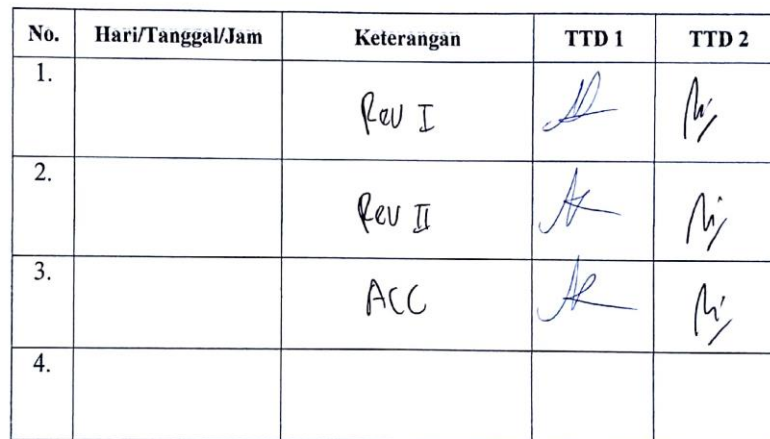 No. Hari/Tanggal/Jam Keterangan TTD 1 TTD 2
1. Rev I
2. Rev II
3. ACC
4.